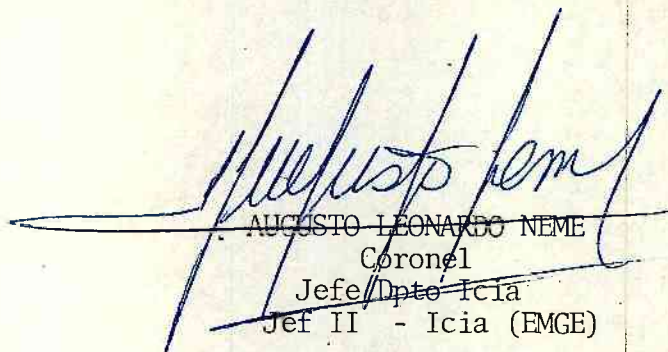 Augusto Neme
AUGUSTO LEONARDO NEME
Coronel
Jefe Dpto Icia
Jef II - Icia (EMGE)